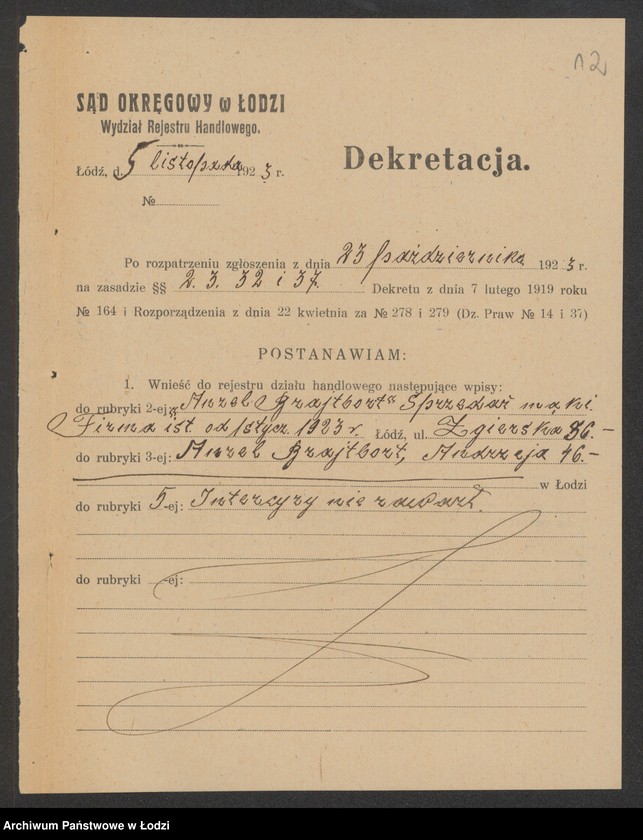 12
SĄD OKRĘGOWY w ŁODZI
Wydział Rejestru Handlowego.
Dekretacja.
Łódź, d. 5 listopada 1923 r.
№
Po rozpatrzeniu zgłoszenia z dnia 23 października 1923 r.
na zasadzie §§ 2. 3. 32 i 37. Dekretu z dnia 7 lutego 1919 roku
№ 164 i Rozporządzenia z dnia 22 kwietnia za № 278 i 279 (Dz. Praw № 14 i 37)
POSTANAWIAM:
1. Wnieść do rejestru działu handlowego następujące wpisy:
do rubryki 2-ej: „Anzel Grajtbort" Sprzedaż mąki.
Firma ist. od 1 stycz. 1923 r. Łódź, ul. Zgierska 36.-
do rubryki 3-ej: Anzel Grajtbort, Andrzeja 46.-
w Łodzi
do rubryki 5-ej: Intercyzy nie zawarł.
do rubryki -ej:
Archiwum Państwowe w Łodzi